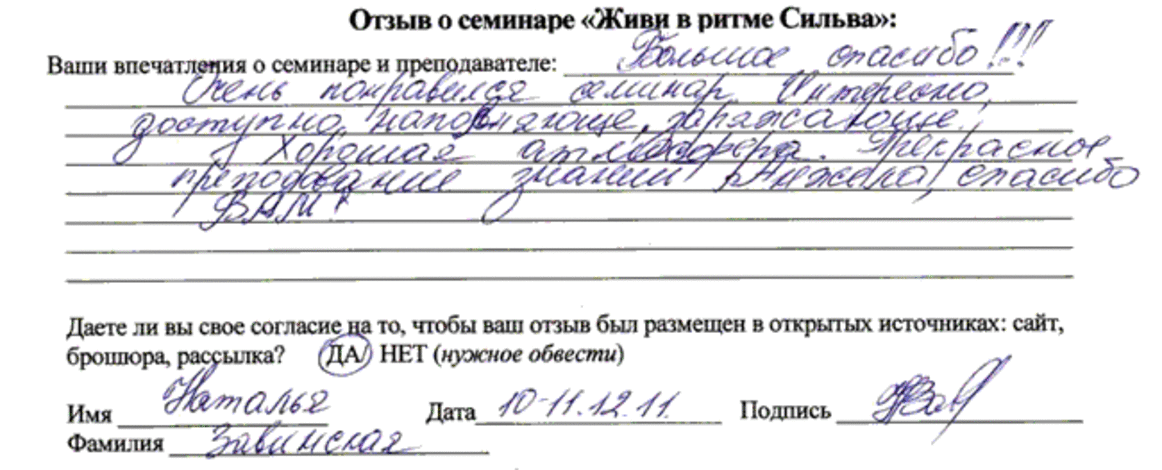 Отзыв о семинаре «Живи в ритме Сильва»:
Ваши впечатления о семинаре и преподавателе: Большое спасибо!!!
Очень понравился семинар. Интересно,
доступно, наполняюще, заряжающе.
Хорошая атмосфера. Прекрасное
преподавание знаний. Анжела, спасибо
ВАМ!
Даете ли вы свое согласие на то, чтобы ваш отзыв был размещен в открытых источниках: сайт,
брошюра, рассылка? ДА/ НЕТ (нужное обвести)
Имя Наталья Дата 10-11.12.11. Подпись
Фамилия Завинская